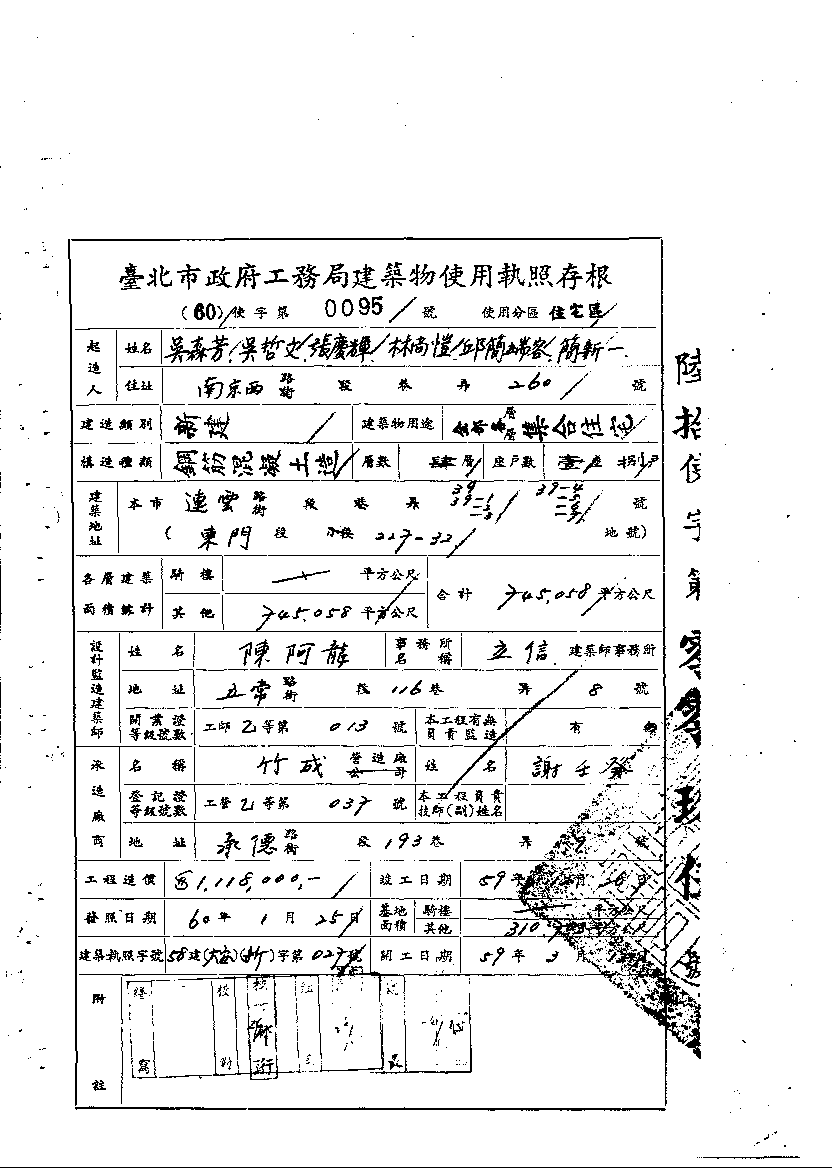 臺北市政府工務局建築物使用執照存根
(60)使字第 0095 號 使用分區 住宅區
起造人 姓名 吳森芳 吳哲史 張慶輝 林尚愷 邱簡端容 簡新一
住址 南京西 路街 段 巷 弄 260 號
建造類別 新建 建築物用途 全部各層層集合住宅
構造種類 鋼筋混凝土造 層數 肆層 座戶數 壹座 捌戶
建築地址 本市 連雲 路街 段 巷 弄 39 39-1 -2 -3 39-4 -5 -6 -7 號
(東門 段 小段 227-32 地號)
各層建築面積總計 騎樓 平方公尺 合計 745.058 平方公尺
其他 745.058 平方公尺
設計監造建築師 姓名 陳阿龍 事務所名稱 立信 建築師事務所
地址 五常 路街 段 116 巷 弄 8 號
開業證等級號數 工師乙等第 013 號 本工程有無負責監造 有
承造廠商 名稱 竹成 營造廠公司 姓名 謝壬
登記證等級號數 工營乙等第 037 號 本工程負責技師(副)姓名
地址 承德 路街 段 193 巷 弄 9 號
工程造價 1,118,000,- 竣工日期 59年 月 日
發照日期 60年 1月 25日 基地面積 騎樓 平方公尺
其他 310. 平方公尺
建築執照字號 58建(大安)(新)字第 027 號 開工日期 59年 3月
附註
繕寫 校對
陸拾使字第零零玖伍